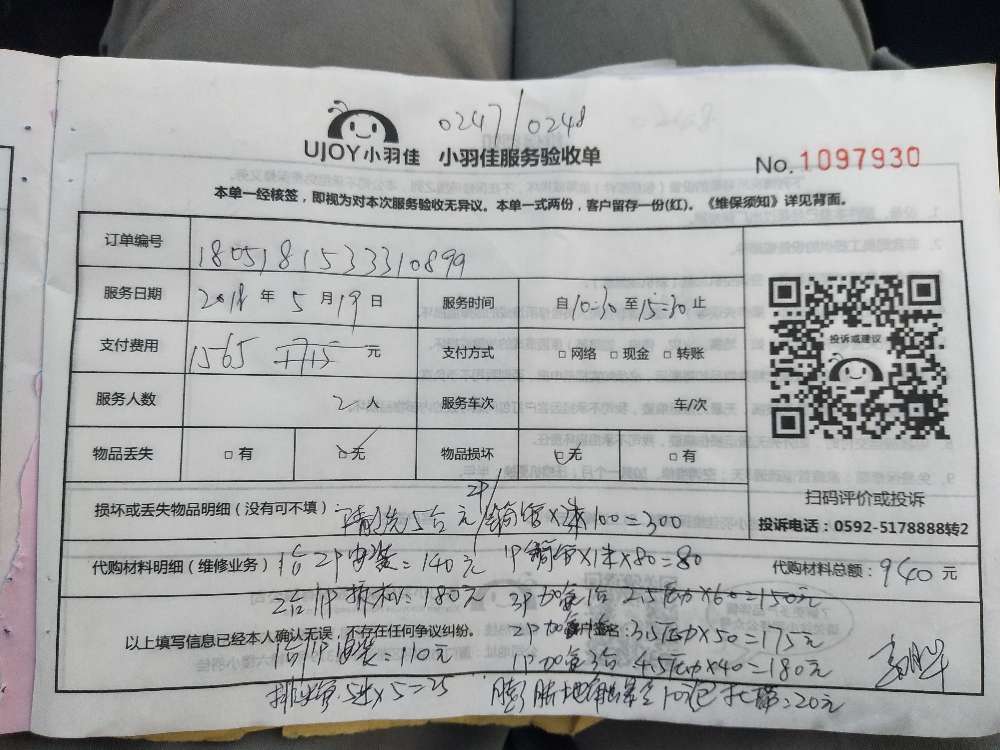 0247/0248
UJOY小羽佳 小羽佳服务验收单
No. 1097930
本单一经核签，即视为对本次服务验收无异议。本单一式两份，客户留存一份(红)。《维保须知》详见背面。
订单编号 1805181533310899
服务日期 2018 年 5 月 19 日 服务时间 自 10:30 至 15:30 止
支付费用 1565 1715 元 支付方式 □ 网络 □ 现金 □ 转账
服务人数 2 人 服务车次 车/次
物品丢失 □ 有 □ 无 物品损坏 □ 无 □ 有
投诉或建议
扫码评价或投诉
投诉电话：0592-5178888转2
损坏或丢失物品明细（没有可不填） 清洗5台元 2P 铜管×3米×100=300
代购材料明细（维修业务） 1台2P安装=140元 1P铜管×1米×80=80
代购材料总额：940 元
2台1P拆机=180元 3P加氟1台 2.5压力×60=150元
以上填写信息已经本人确认无误，不存在任何争议纠纷。 客户签名：
2P加氟 3.5压力×50=175元
1台1P安装=110元 1P加氟3台 4.5压力×40=180元
排水管5米×5=25 膨胀 10 =20元